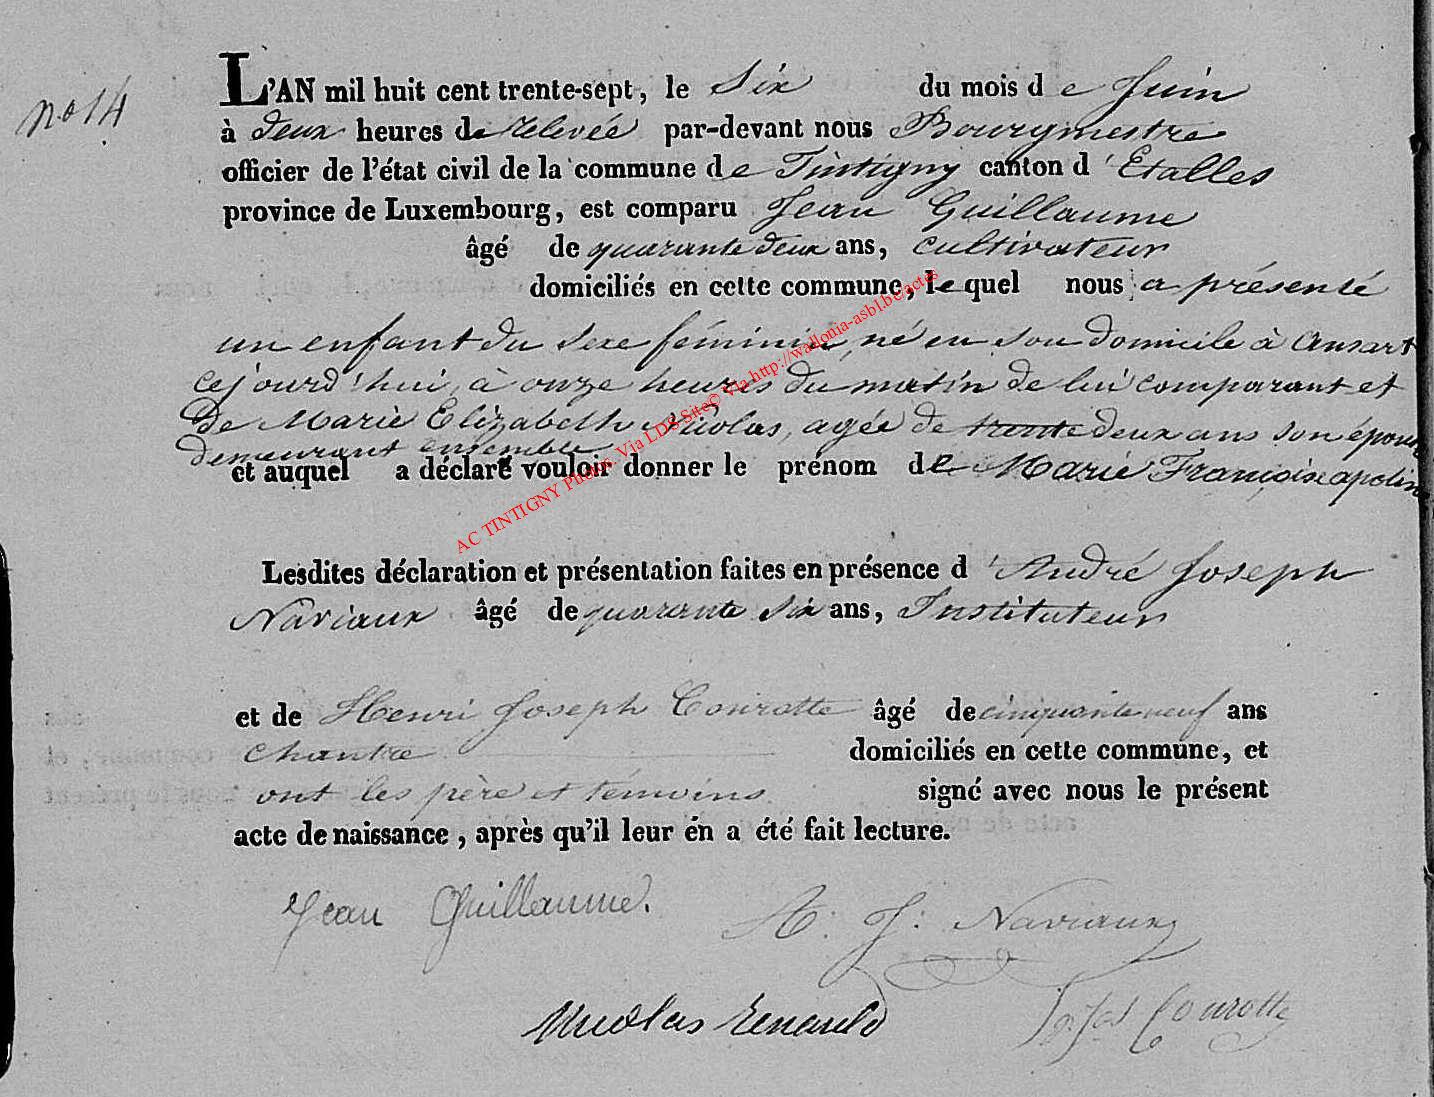 no 14
L'AN mil huit cent trente-sept, le Six du mois de Juin
à deux heures de relevée par-devant nous Bourgmestre
officier de l'état civil de la commune de Tintigny canton d'Etalles
province de Luxembourg, est comparu Jean Guillaume
âgé de quarante deux ans, cultivateur
domiciliés en cette commune, le quel nous a présenté
un enfant du sexe féminin, né en son domicile à Ansart
cejourd'hui, à onze heures du matin de lui comparant et
de Marie Elizabeth Nicolas, agée de trente deux ans son épouse
demeurant ensemble
et auquel a déclaré vouloir donner le prénom de Marie Françoise apolin
Lesdites déclaration et présentation faites en présence d'André Joseph
Naviaux âgé de quarante six ans, Instituteur
et de Henri Joseph Courotte âgé de cinquante neuf ans
chantre domiciliés en cette commune, et
ont les père et témoins signé avec nous le présent
acte de naissance, après qu'il leur en a été fait lecture.
Jean Guillaume.
A: J: Naviaux
Nicolas Renauld
Jos Courotte
AC TINTIGNY Photos Via LDS Site© Via http://wallonia-asbl.be/actes